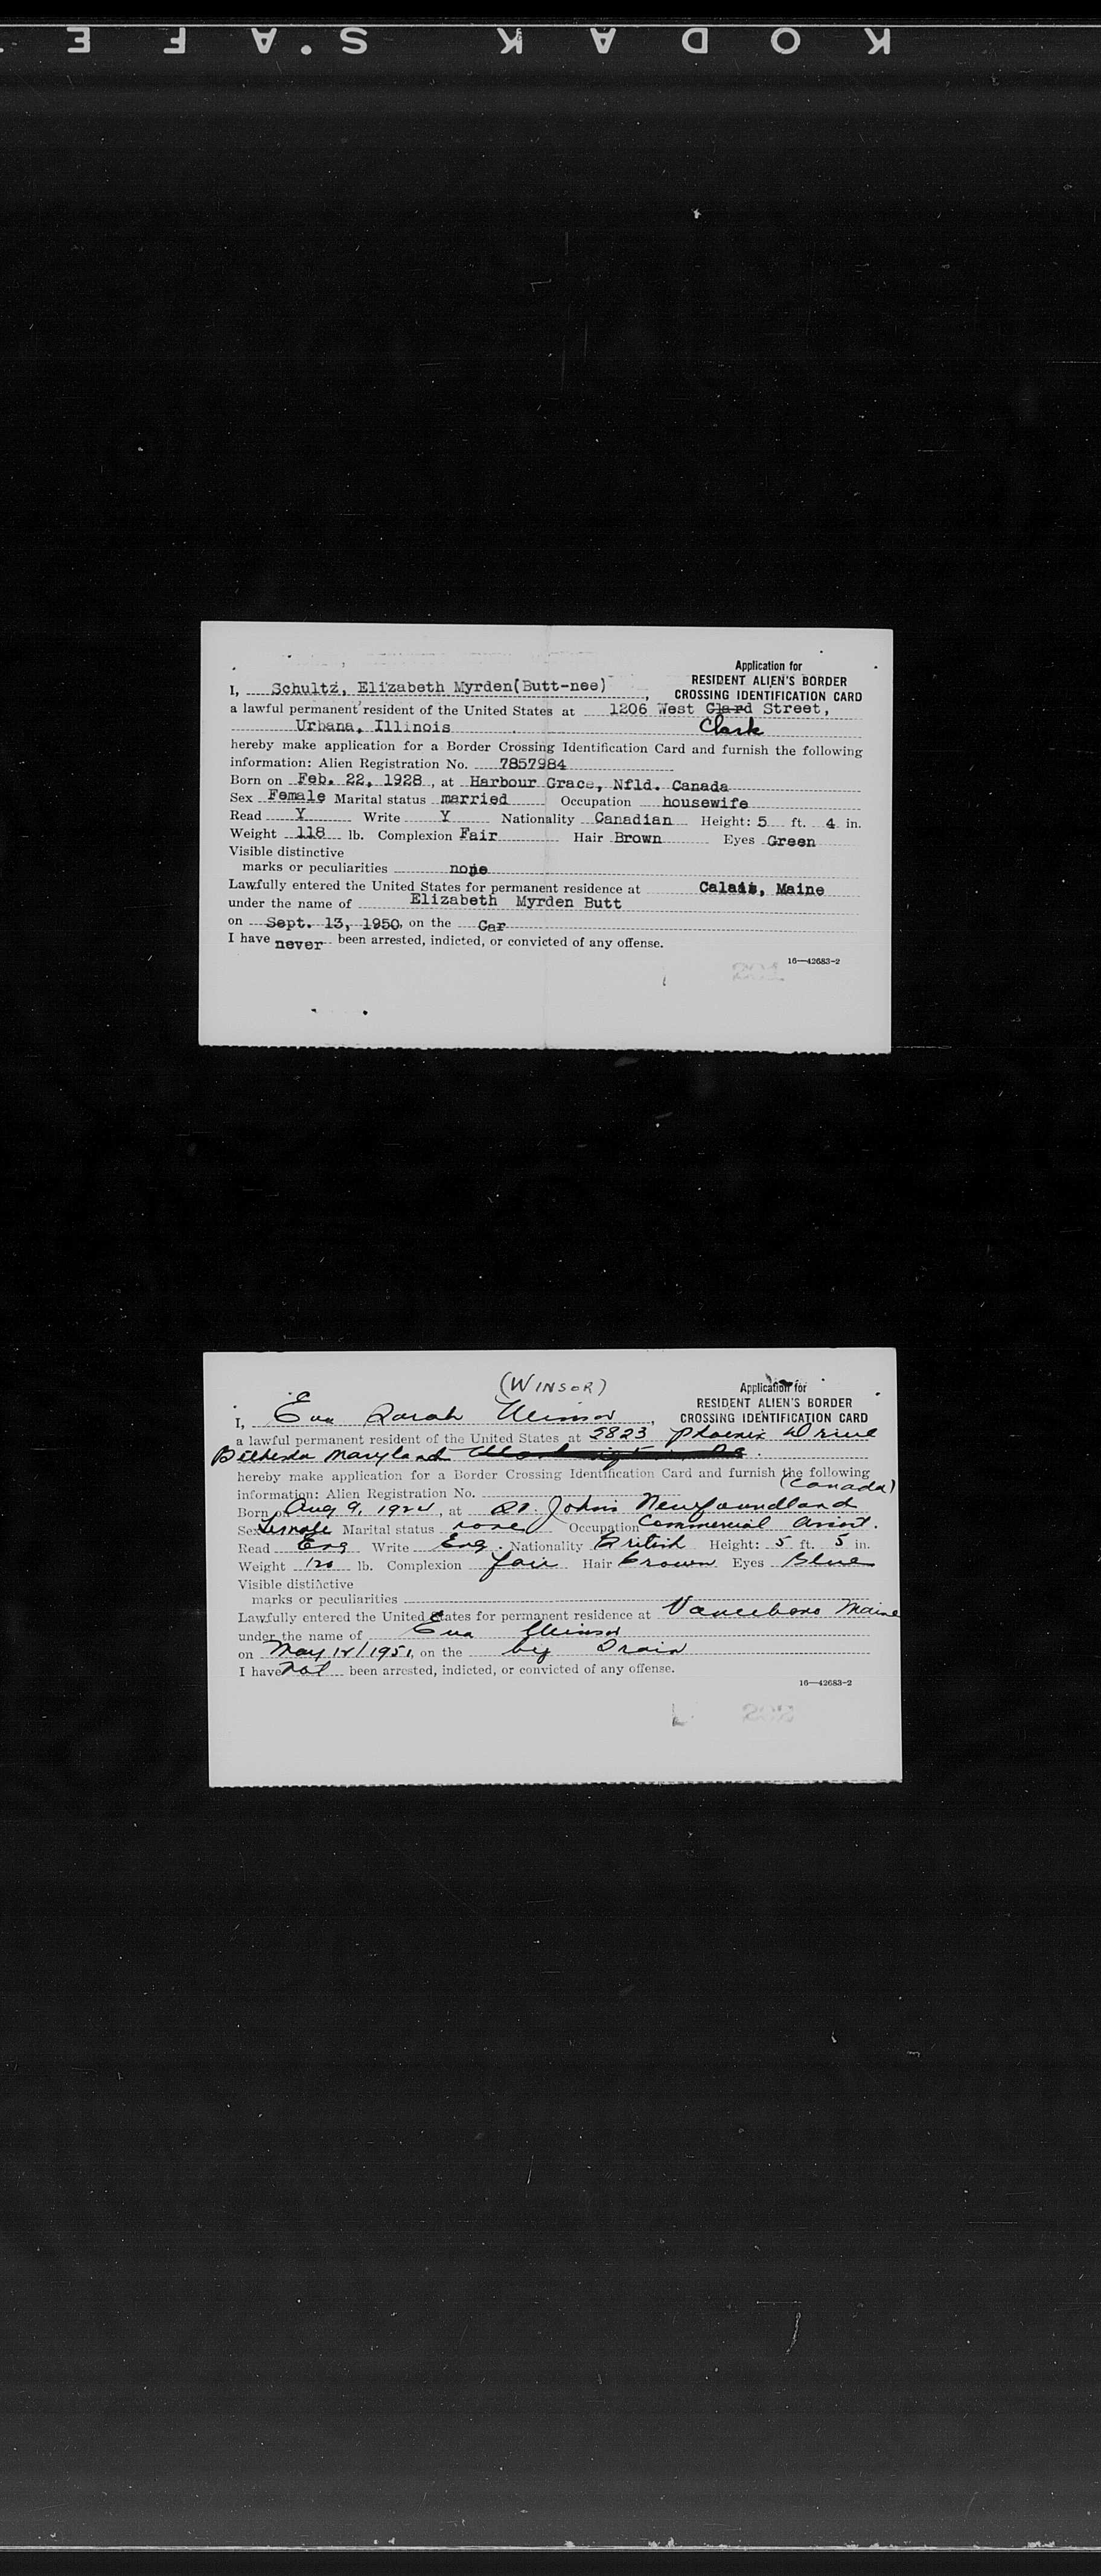 KODAK S.A F E
Application for
RESIDENT ALIEN'S BORDER
CROSSING IDENTIFICATION CARD
I, Schultz, Elizabeth Myrden(Butt-nee),
a lawful permanent resident of the United States at 1206 West Glard Street,
Urbana, Illinois Clark
hereby make application for a Border Crossing Identification Card and furnish the following
information: Alien Registration No. 7857984
Born on Feb. 22, 1928, at Harbour Grace, Nfld. Canada
Sex Female Marital status married Occupation housewife
Read Y Write Y Nationality Canadian Height: 5 ft. 4 in.
Weight 118 lb. Complexion Fair Hair Brown Eyes Green
Visible distinctive
marks or peculiarities none
Lawfully entered the United States for permanent residence at Calais, Maine
under the name of Elizabeth Myrden Butt
on Sept. 13, 1950, on the Car
I have never been arrested, indicted, or convicted of any offense.
16—42683-2
(WINSOR)
Application for
RESIDENT ALIEN'S BORDER
CROSSING IDENTIFICATION CARD
I, Eva Sarah Winsor,
a lawful permanent resident of the United States at 5823 Phoenix Drive
Bethesda Maryland
hereby make application for a Border Crossing Identification Card and furnish the following
information: Alien Registration No. (Canada)
Born on Aug 9, 1924, at St. Johns Newfoundland
Sex Female Marital status none Occupation Commercial Assist.
Read Eng Write Eng. Nationality British Height: 5 ft. 5 in.
Weight 120 lb. Complexion fair Hair brown Eyes Blue
Visible distinctive
marks or peculiarities
Lawfully entered the United States for permanent residence at Vanceboro Maine
under the name of Eva Winsor
on May /1951, on the by Train
I have not been arrested, indicted, or convicted of any offense.
16—42683-2